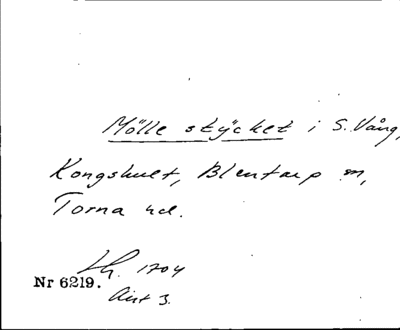 Mölle stycket i S. Vång,
Kongshult, Blentarp sn,
Torna hd.
Lh. 1704
Nr 6219.
Akt 3.